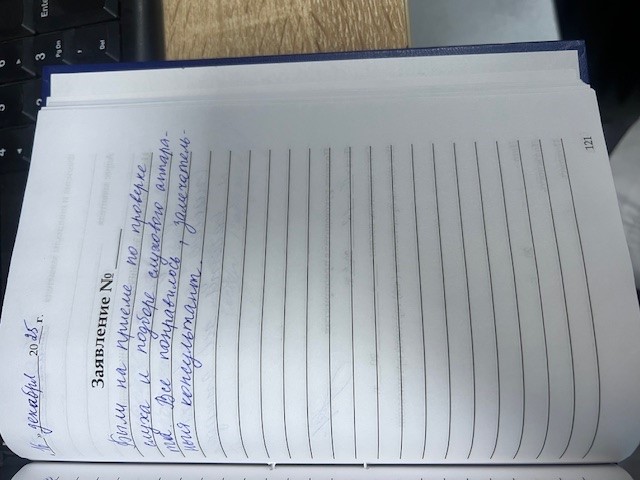 декабря 2025 г.
Заявление № ____
Были на приеме по проверке
слуха и подборе слухового аппара-
та. Все понравилось, замечатель-
ный консультант.
121